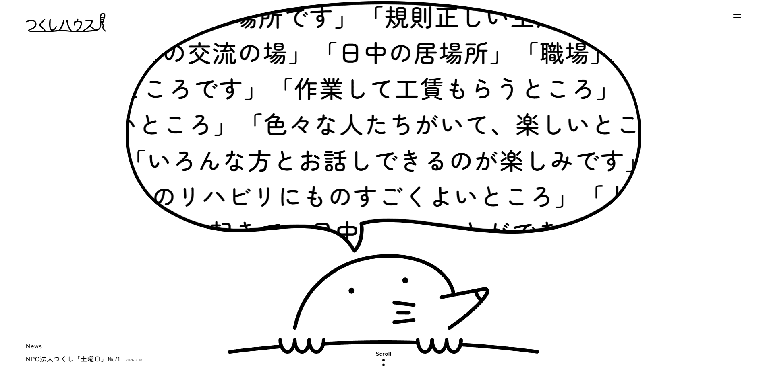 つくしハウス
場所です」「規則正しい生
の交流の場」「日中の居場所」「職場」
ころです」「作業して工賃もらうところ」
ところ」「色々な人たちがいて、楽しいとこ
「いろんな方とお話しできるのが楽しみです」
のリハビリにものすごくよいところ」「
Scroll
News
NPO法人つくし「土曜日」